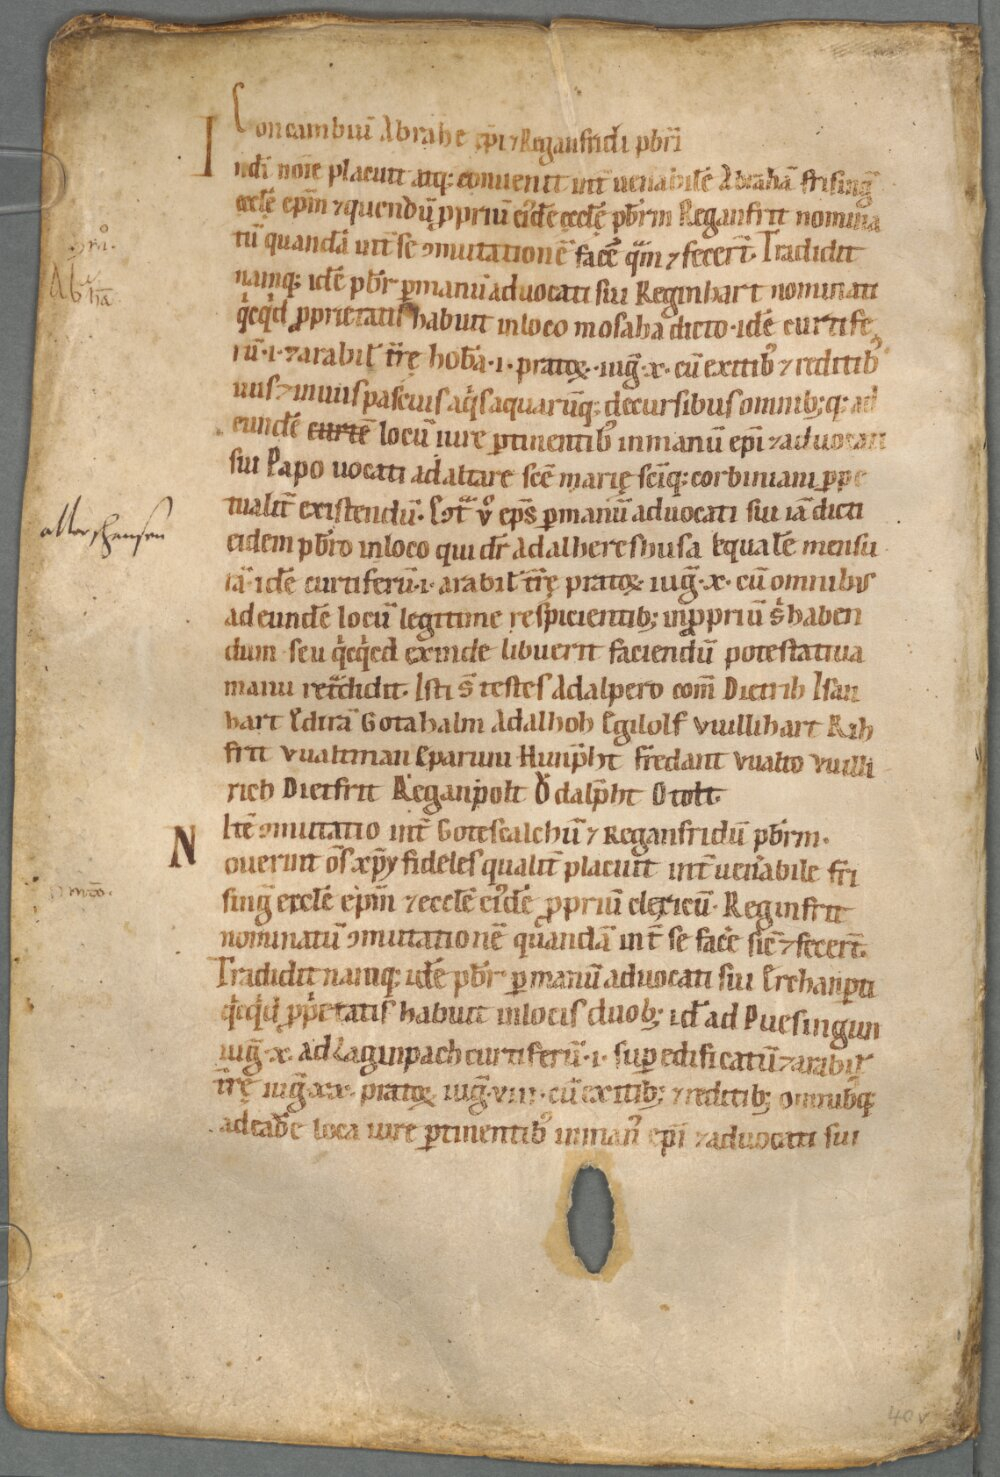 Concambiū Abrahe ep̄i ⁊ Reganfridi pbr̄i
In dī noīe placuit atq; conuenit int̄ uenabilē Abrahā frisinḡ
ęcclē ep̄m ⁊ quendā ꝓpriū eiꝰdē ęcclę̄ pbr̄m Reganfrit nomina
tū quandā int̄ se ꝯmutationē facē q̄m ⁊ fecer̄. Tradidit
namq; idē pbr̄ ꝑ manū aduocati sui Reginhart nominati
q̇cq̇d ꝓprietatis habuit in loco mosaha dicto · idē curtife
rū · i · ⁊ arabil̄ t̄rę hobā · i · pratoꝝ · iuḡ · x · cū exitibꝰ ⁊ reditibꝰ
uiis ⁊ inuiis pascuis aq̇s aquarūq; decursibus omnib; q; ad
eundē curtē locū iure ꝑtinentibꝰ in manū ep̄i ⁊ aduocati
sui Papo uocati ad altare scē marię scīq; corbiniani ꝑpe
tualit̄ existendū. Cōt̄ v̊ ep̄s ꝑ manū aduocati sui iā dicti
eidem pbr̄o in loco qui dr̄ Adalhereshusa equalē mensu
rā · idē curtiferū · i · arabil̄ t̄rę pratoꝝ iuḡ · x · cū omnibus
ad eundē locū legitime respicientib; in ꝓpriū s̓ haben
dum seu q̇cq̇d exinde libuerit faciendū potestatiua
manu ret̄didit. Isti s̄ testes Adalpero com̄ Dietrih Isan
hart Edirā Gotahalm Adalhoh Egilolf Vuillihart Rih
frit Vualtman Eparuni Hunp̄ht fredant Vualto Vuilli
rich Dietfrit Reganpolt Ǒdalp̄ht Otolt.
Itē ꝯmutatio int̄ Gotescalchū ⁊ Reganfridū pbr̄m.
Nouerint ōs xp̄i fideles qualit̄ placuit int̄ uenabilē fri
sinḡ ecclē ep̄m ⁊ ecclē eiꝰdē ꝓpriū clericū Reginfrit
nominatū ꝯmutationē quandā int̄ se facē sic̄ ⁊ fecer̄.
Tradidit namq; idē pbr̄ ꝑ manū aduocati sui Erchanꝑti
q̇cq̇d ꝓṗetatis habuit in locis duob; id̄ ad Puesingun
iuḡ · x · ad Laginpach curtiferū · i · suꝑedificatū ⁊ arabil̄
t̄rę iuḡ · xx · pratoꝝ iuḡ · viii · cū exitib; ⁊ reditib; omnibꝰq;
ad eadē loca iure ꝑtinentibꝰ in man̄ ep̄i ⁊ aduocati sui
allershausen
40v